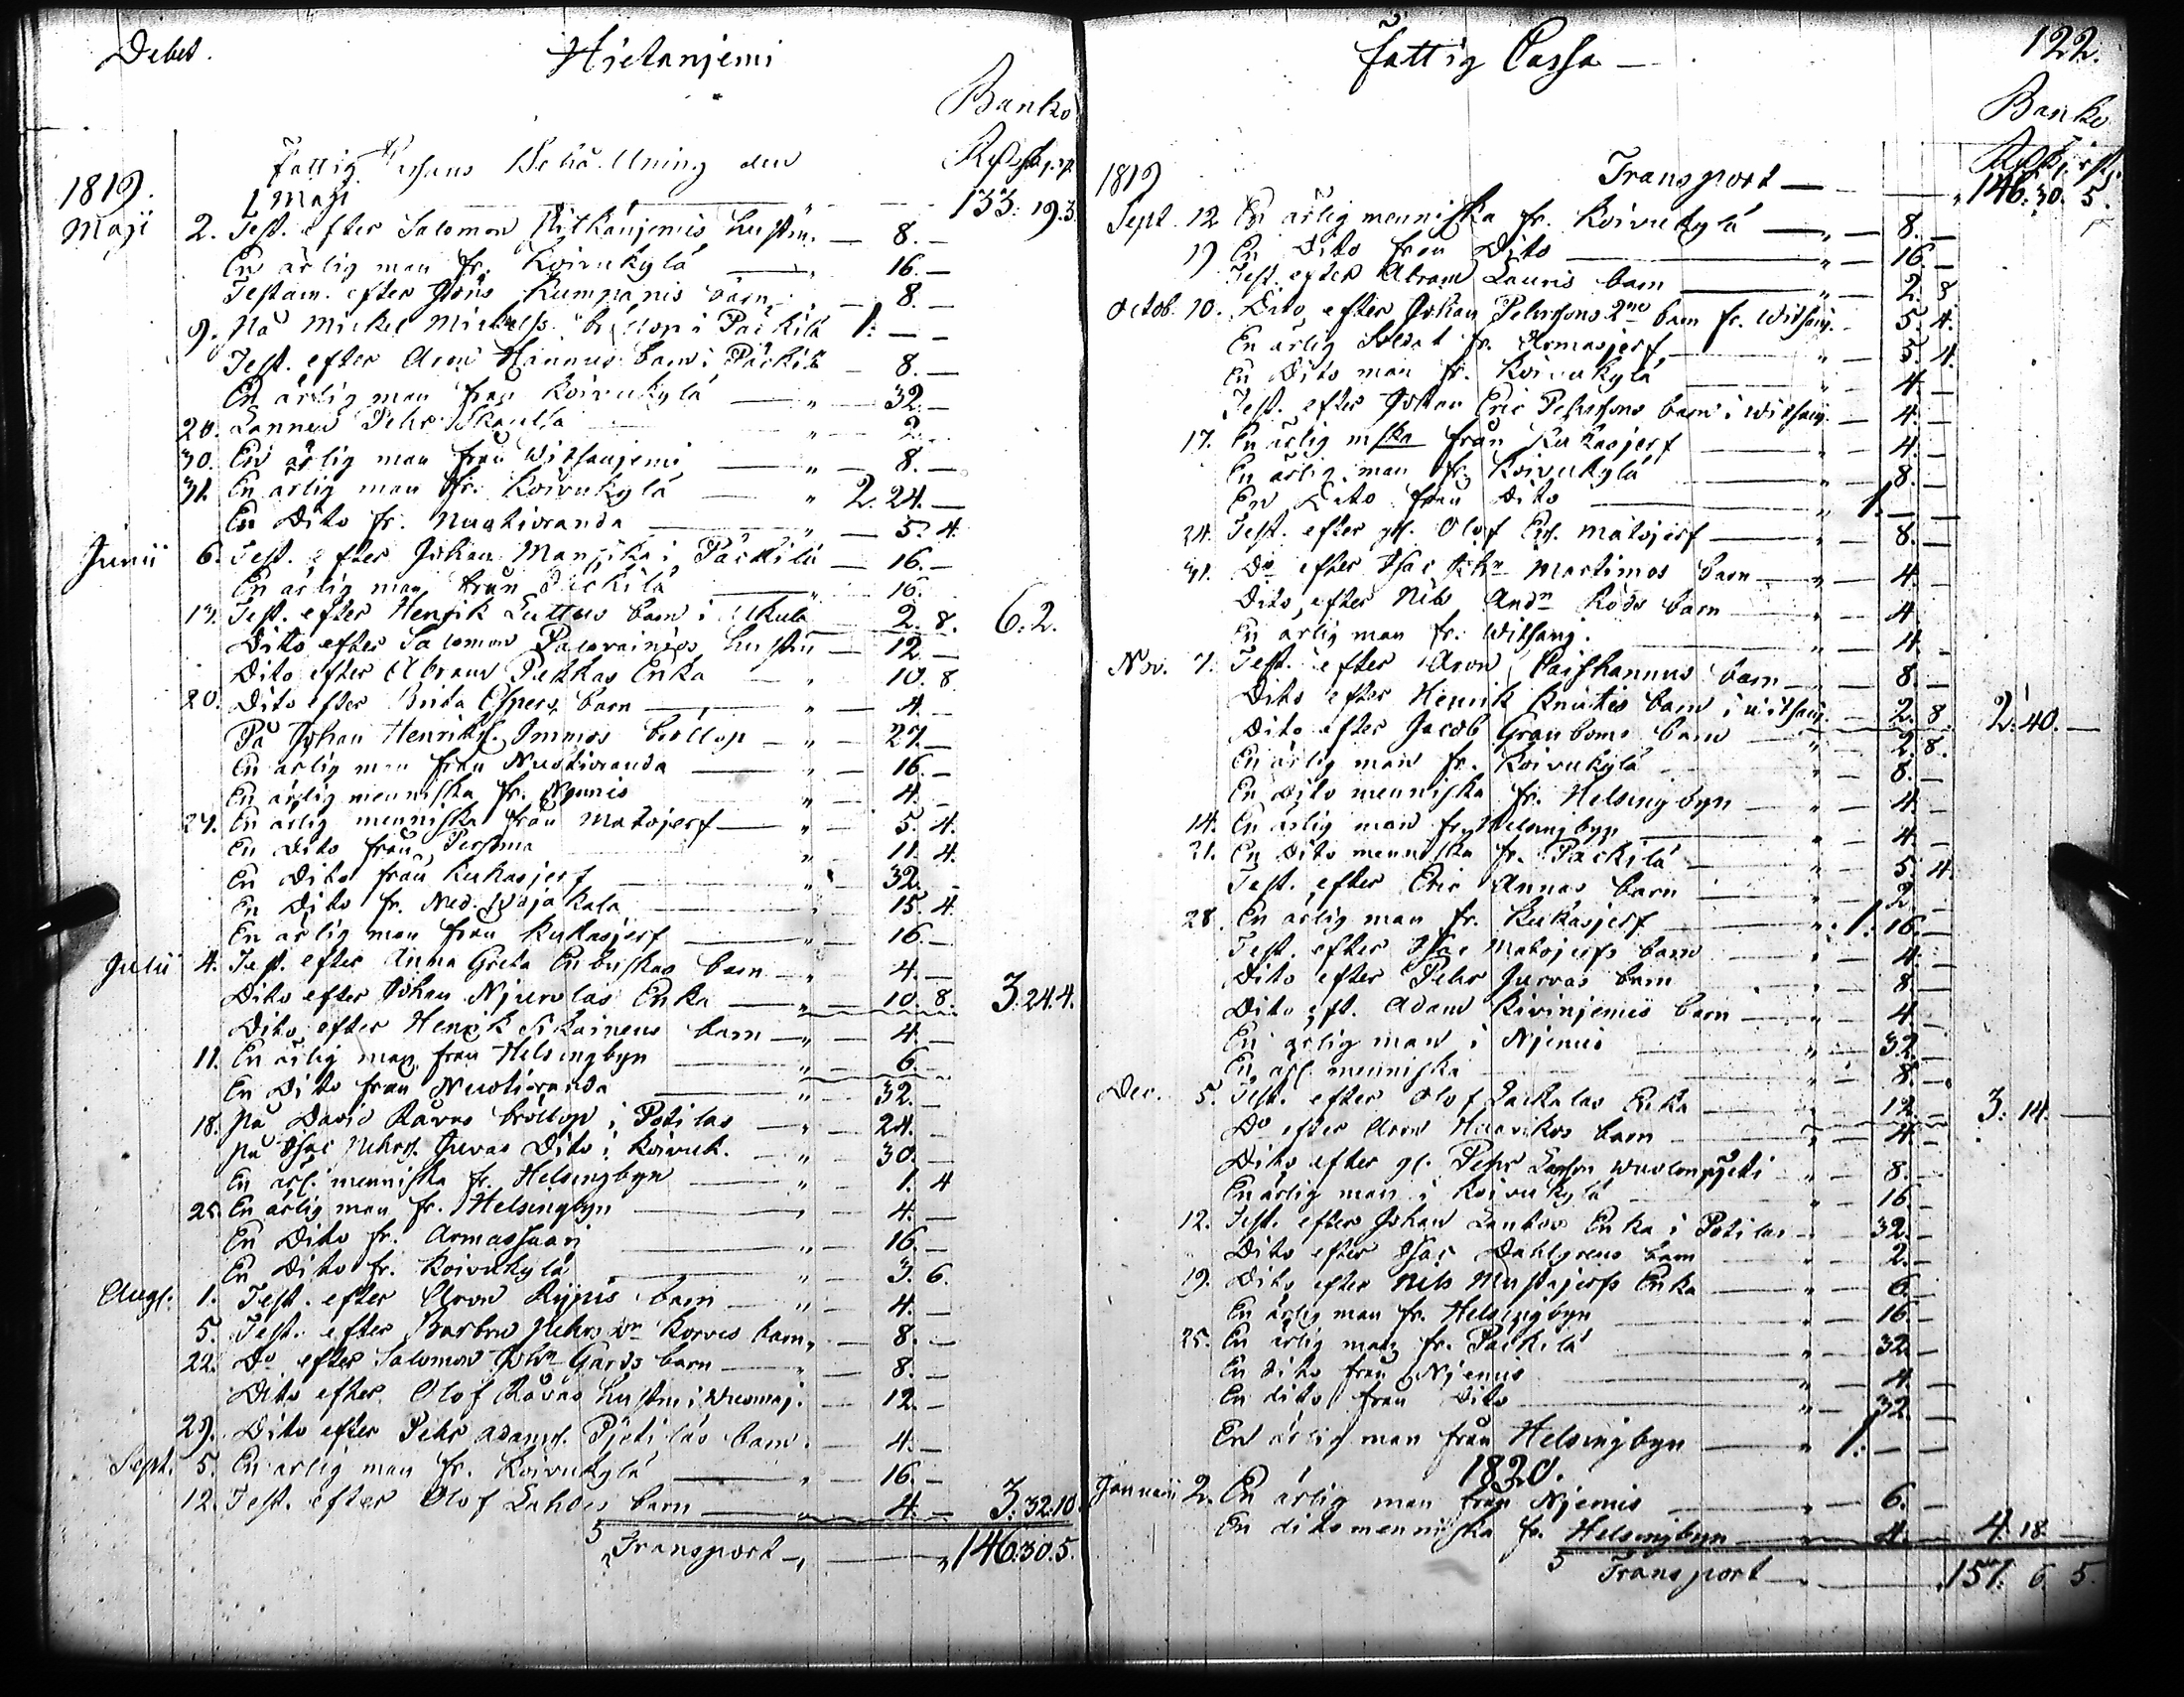 Debet. Hietanjemi
Banko
Fattig Cassans Behållning den
1819. 1 Maji 133: 19. 3.
Maji 2. Test. efter Salomon Pitkänjemis hustru. — 8. —
En ärlig man fr. Koivukylä — 16. —
Testam. efter Jöns Rumpanis barn — 8. —
9. På Mickel bröllop i Päckilä 1: — —
Test. efter Aron Hannus barn i Päckilä — 8. —
En ärlig man från Koivukylä — 32. —
20. Pehr — 2. —
30. En ärlig man från Witsanjemi — 8. —
31. En ärlig man fr. Koivukylä — 2. 24. —
En Dito fr. Nuotioranda — 5. 4.
Junii 6. Test. efter Johan i Päckilä — 16. —
En ärlig man från Päckilä — 16.
13. Test. efter Henrik barn i — 2. 8. 6: 2.
Dito efter Salomon Palovainios hustru — 12 —
Dito efter Abram Pekkas Enka — 10. 8.
20. Dito efter Brita Espers barn — 4. —
På Johan Henriks. Immos bröllop — 27. —
En ärlig man från Nuotioranda — 16. —
En ärlig menniska fr. Njemis — 4. —
27. En ärlig menniska från Matojerf — 5. 4.
En Dito från — 11. 4.
En Dito från Kukasjerf — 32. —
En Dito fr. Ned. Wojakala — 15. 4.
En ärlig man från Kukasjerf — 16. —
Julii 4. Test. efter Anna Greta Enbuskas barn — 4. —
Dito efter Johan Njurolas Enka — 10. 8. 3. 24. 4.
Dito efter Henrik Sikainens barn — 4. —
11. En ärlig man från Helsingbyn — 6. —
En Dito från Nuotioranda — 32. —
18. På David Råvas bröllop i Potilas — 24. —
På Isac Pehrs. Juvas Dito i Koivuk. — 30. —
En ärl. menniska fr. Helsingbyn — 1. 4
25. En ärlig man fr. Helsingbyn — 4. —
En Dito fr. Armassaari — 16. —
En Dito fr. Koivukylä — 3. 6.
Aug. 1. Test. efter Aron barn — 4. —
5. Test. efter Barbro Korvis barn — 8. —
22. Do efter Salomon Joh:n Gards barn — 8. —
Dito efter Olof Råvas hustru i — 12. —
29. Dito efter Pehr Adams. Pjetiläs barn. — 4. —
Sept. 5. En ärlig man fr. Koivukylä — 16. —
12. Test. efter Olof Lahdes barn — 4. — 3: 32. 10.
Transport — 146: 30. 5.
Fattig Cassa — 122.
Banko
1819 Transport — 146: 30. 5.
Sept. 12 En ärlig menniska fr. Koivukylä — 8. —
19 En Dito från Dito — 16. —
Test. efter Abram Lauris barn — 2. 8
Octob. 10. Dito efter Johan Pehrssons 2ne barn fr. Witsanj. — 5. 4.
En ärlig Soldat fr. Armasjerf — 5. 4.
En Dito man fr. Koivukylä — 4. —
Test. efter Johan Eric Pehrssons barn i Witsanj. — 4. —
17. En ärlig mska från Kukasjerf — 4. —
En ärlig man fr. Koivukylä — 8. —
En Dito från Dito — 1. — —
24. Test. efter gl. Olof Ers. Matojerf — 8. —
31. Do efter Isac Joh:n Martimos barn — 4. —
Dito efter Nils And:n Röds barn — 4. —
En ärlig man fr. Witsanj. — 4. —
Nov. 7. Test. efter Aron Parshannus barn — 8. —
Dito efter Henrik Knutis barn i Witsanj. — 2. 8. 2: 40. —
Dito efter Jacob Granboms barn — 2. 8.
En ärlig man fr. Koivukylä — 8. —
En Dito menniska fr. Helsingbyn — 4. —
14. En ärlig man fr. Helsingbyn — 4. —
21. En Dito menniska fr. Päckilä — 5. 4.
Test. efter Eric Annas barn — 2. —
28. En ärlig man fr. Kukasjerf — 1. 16. —
Test. efter Isac Matojerfs barn — 4. —
Dito efter Pehr Jurvas barn — 8. —
Dito eft. Adam Kivinjemis barn — 4. —
En ärlig man i Njemis — 32. —
En ärl. menniska — 8. —
Dec. 5. Test. efter Olof Lackalas Enka — 12. — 3: 14. —
Do efter Aron Huuvikos barn — 4. —
Dito efter gl. Pehr Larsson — 8. —
En ärlig man i Koivukylä — 16. —
12. Test. efter Johan Lankos Enka i Potilas — 32. —
Dito efter Isac Dahlgrens barn — 2. —
19. Dito efter Nils Mustajerfs Enka — 6. —
En ärlig man fr. Helsingbyn — 16. —
25. En ärlig man fr. Päckilä — 32. —
En dito från Njemis — 4. —
En dito från Dito — 32. —
En ärlig man från Helsingbyn — 1. — —
1820.
Januarii 2. En ärlig man från Njemis — 6. —
En dito menniska fr. Helsingbyn — 4. — 4. 18 —
Transport — 151: 6. 5.